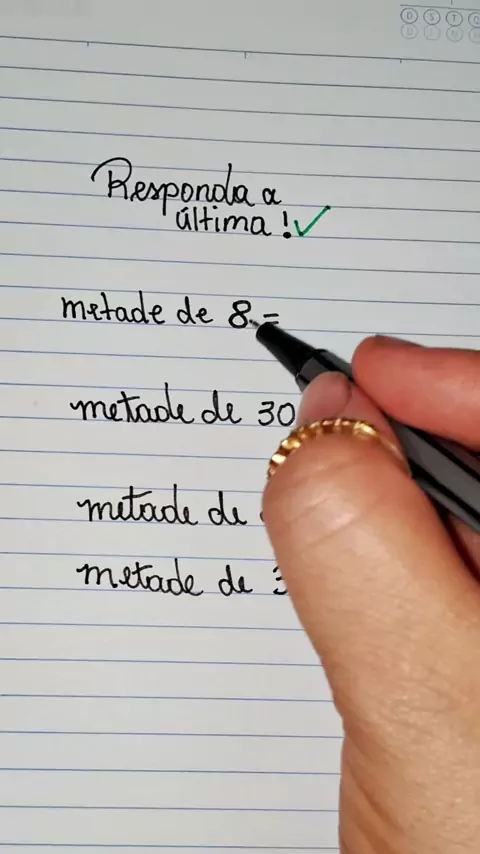 D S T Q
Responda a
última!
metade de 8 =
metade de 30
metade de
metade de 3